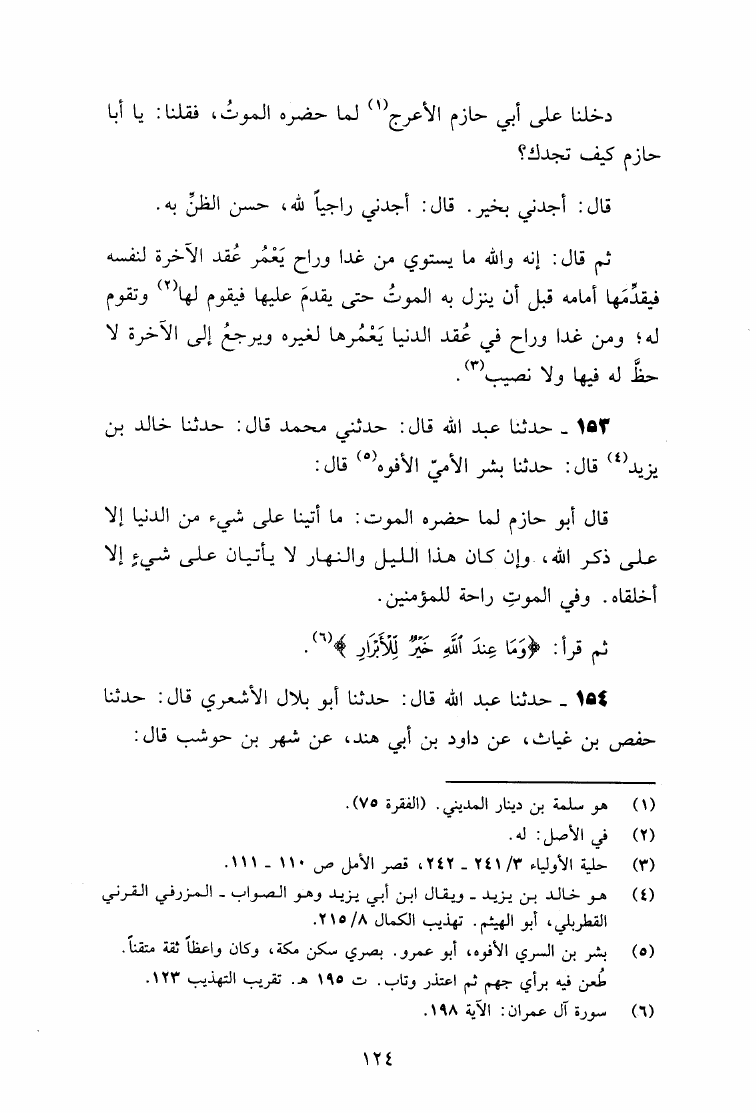 دخلنا على أبي حازم الأعرج(١) لما حضره الموتُ، فقلنا: يا أبا
حازم كيف تجدك؟
قال: أجدني بخير. قال: أجدني راجياً لله، حسن الظنِّ به.
ثم قال: إنه والله ما يستوي من غدا وراح يَعْمُر عُقد الآخرة لنفسه
فيقدِّمَها أمامه قبل أن ينزل به الموتُ حتى يقدمَ عليها فيقوم لها(٢) وتقوم
له؛ ومن غدا وراح في عُقد الدنيا يَعْمُرها لغيره ويرجعُ إلى الآخرة لا
حظَّ له فيها ولا نصيب(٣).
١٥٣ ـ حدثنا عبد الله قال: حدثني محمد قال: حدثنا خالد بن
يزيد(٤) قال: حدثنا بشر الأميّ الأفوه(٥) قال:
قال أبو حازم لما حضره الموت: ما أتينا على شيء من الدنيا إلا
على ذكر الله، وإن كان هذا الليل والنهار لا يأتيان على شيءٍ إلا
أخلقاه. وفي الموتِ راحة للمؤمنين.
ثم قرأ: ﴿وَمَا عِندَ ٱللَّهِ خَيْرٌ لِّلْأَبْرَارِ﴾(٦).
١٥٤ ـ حدثنا عبد الله قال: حدثنا أبو بلال الأشعري قال: حدثنا
حفص بن غياث، عن داود بن أبي هند، عن شهر بن حوشب قال:
(١) هو سلمة بن دينار المديني. (الفقرة ٧٥).
(٢) في الأصل: له.
(٣) حلية الأولياء ٣/ ٢٤١ ـ ٢٤٢، قصر الأمل ص ١١٠ ـ ١١١.
(٤) هو خالد بن يزيد ـ ويقال ابن أبي يزيد وهو الصواب ـ المزرفي القرني
القطربلي، أبو الهيثم. تهذيب الكمال ٨/ ٢١٥.
(٥) بشر بن السري الأفوه، أبو عمرو. بصري سكن مكة، وكان واعظاً ثقة متقناً.
طُعن فيه برأي جهم ثم اعتذر وتاب. ت ١٩٥ هـ. تقريب التهذيب ١٢٣.
(٦) سورة آل عمران: الآية ١٩٨.
١٢٤